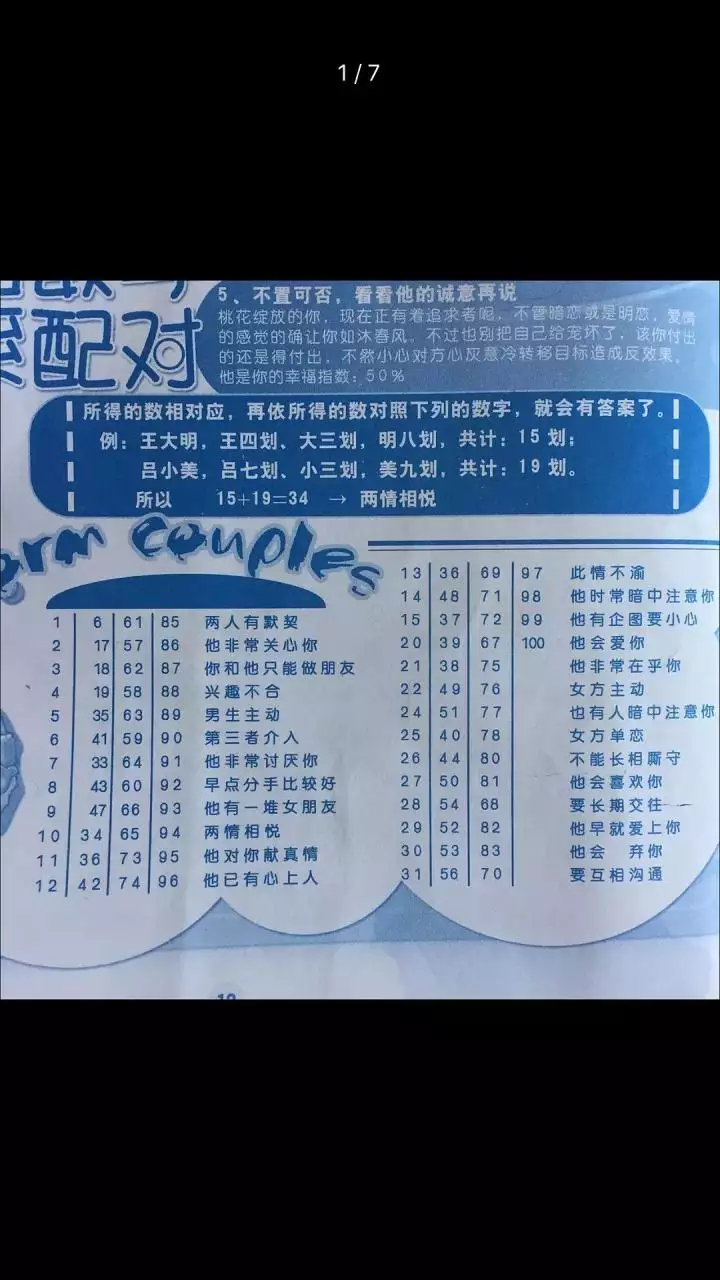 1/7
配对
5、不置可否，看看他的诚意再说
桃花绽放的你，现在正有着追求者呢，不管暗恋或是明恋，爱情
的感觉的确让你如沐春风。不过也别把自己给宠坏了，该你付出
的还是得付出，不然小心对方心灰意冷转移目标造成反效果。
他是你的幸福指数：50%
所得的数相对应，再依所得的数对照下列的数字，就会有答案了。
例：王大明，王四划、大三划，明八划，共计：15 划；
吕小美，吕七划、小三划，美九划，共计：19 划。
所以 15+19=34 → 两情相悦
orm couples
1 6 61 85 两人有默契
2 17 57 86 他非常关心你
3 18 62 87 你和他只能做朋友
4 19 58 88 兴趣不合
5 35 63 89 男生主动
6 41 59 90 第三者介入
7 33 64 91 他非常讨厌你
8 43 60 92 早点分手比较好
9 47 66 93 他有一堆女朋友
10 34 65 94 两情相悦
11 36 73 95 他对你献真情
12 42 74 96 他已有心上人
13 36 69 97 此情不渝
14 48 71 98 他时常暗中注意你
15 37 72 99 他有企图要小心
20 39 67 100 他会爱你
21 38 75 他非常在乎你
22 49 76 女方主动
24 51 77 也有人暗中注意你
25 40 78 女方单恋
26 44 80 不能长相厮守
27 50 81 他会喜欢你
28 54 68 要长期交往
29 52 82 他早就爱上你
30 53 83 他会 弃你
31 56 70 要互相沟通